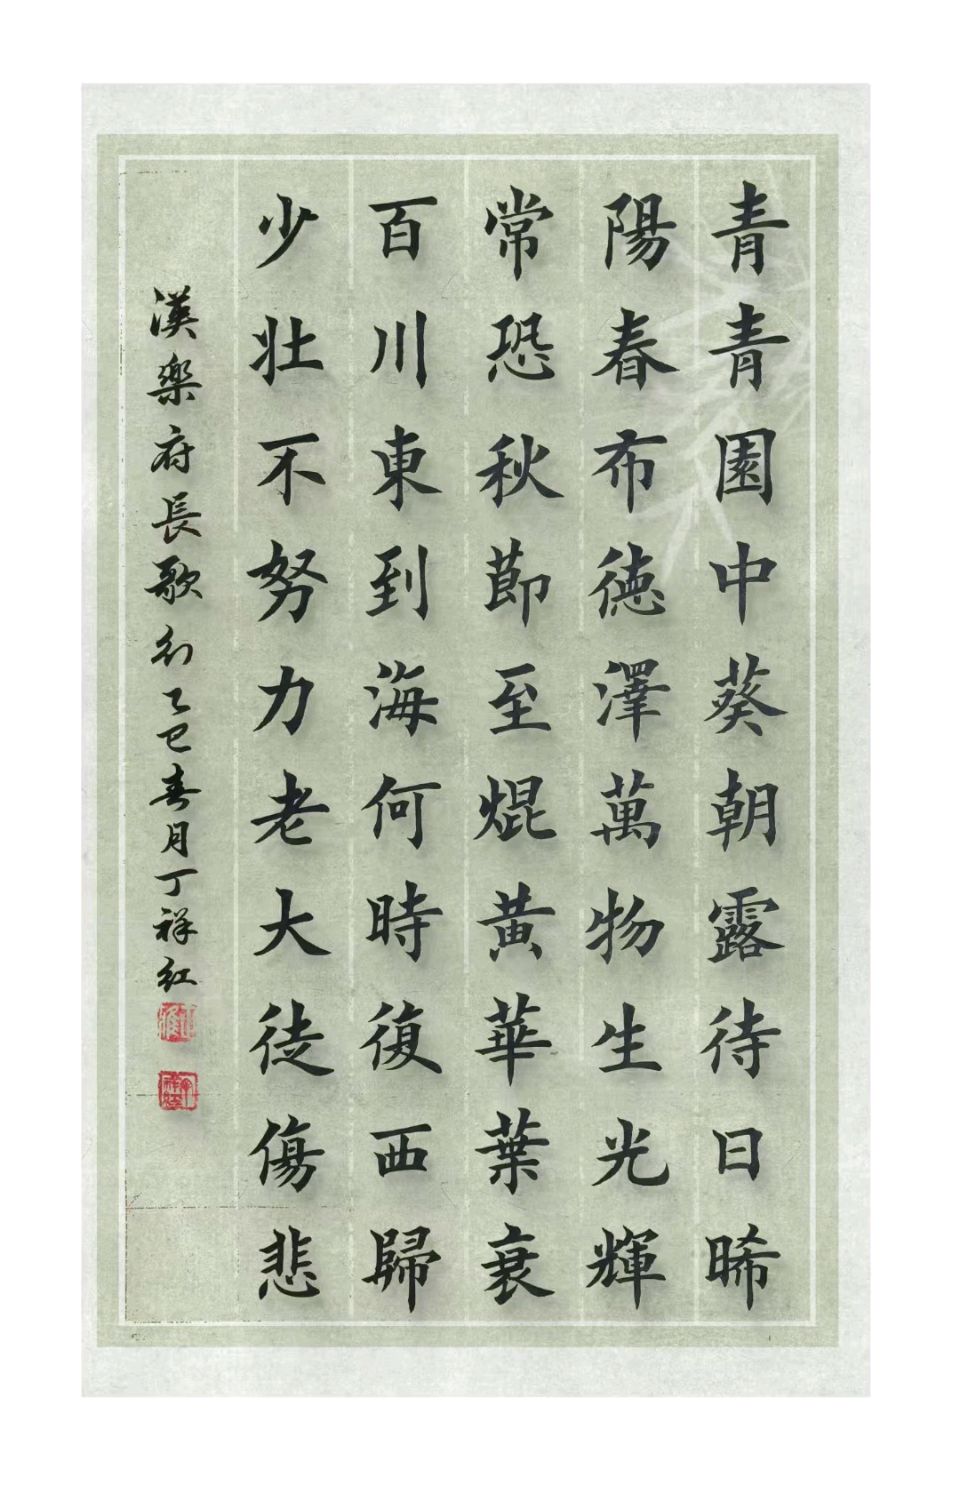 青青園中葵朝露待日晞
陽春布德澤萬物生光輝
常恐秋節至焜黃華葉衰
百川東到海何時復西歸
少壯不努力老大徒傷悲
漢樂府長歌行乙巳春月丁祥红